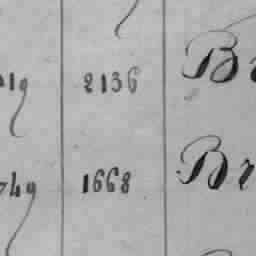 19 2136 Br
749 1668 Br